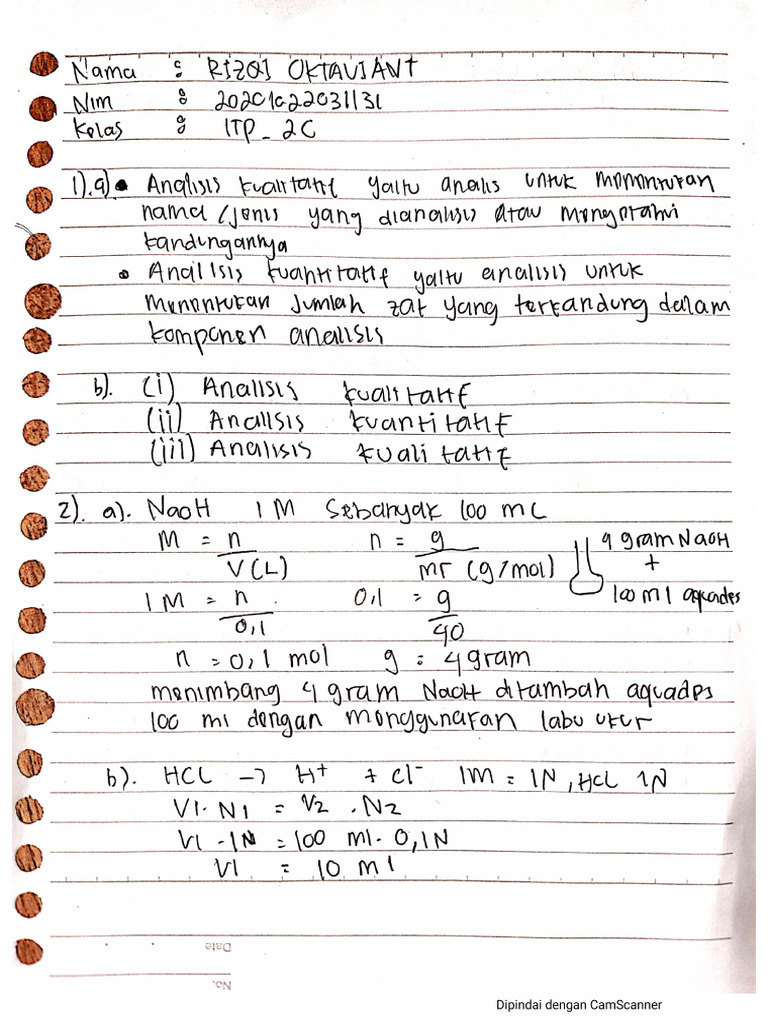 Nama : RIZQI OKTAVIANI
Nim : 202010220311131
Kelas : ITP_2C
1).a) • Analisis kualitatif yaitu analis untuk menentukan
nama / jenis yang dianalisis atau mengetahui
kandungannya
• Analisis kuantitatif yaitu analisis untuk
menentukan jumlah zat yang terkandung dalam
komponen analisis
b). (i) Analisis kualitatif
(ii) Analisis kuantitatif
(iii) Analisis kualitatif
2). a). NaOH 1 M Sebanyak 100 mL
M = n / V(L) n = g / mr (g/mol) 4 gram NaOH
+
1 M = n / 0,1 0,1 = g / 40 100 ml aquades
n = 0,1 mol g = 4 gram
menimbang 4 gram NaOH ditambah aquades
100 ml dengan menggunakan labu ukur
b). HCL → H⁺ + Cl⁻ 1M = 1N, HCL 1N
V1 . N1 = V2 . N2
V1 . 1N = 100 ml . 0,1N
V1 = 10 ml
Date
No.
Dipindai dengan CamScanner